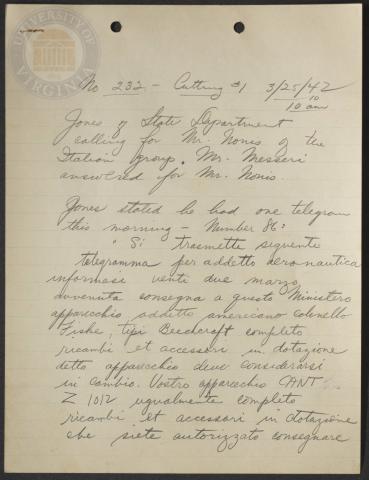 UNIVERSITY OF VIRGINIA
No 232 - Cutting #1 3/25/42
10 10 am
Jones of State Department
calling for Mr. Nonis of the
Italian group. Mr. Messeri
answered for Mr. Nonis.
Jones stated he had one telegram
this morning - Number 86:
" Si trasmette seguente
telegramma per addetto aeronautica
informasi venti due marzo
avvenuta consegna a questo Ministero
apparecchio addetto americano colonello
Fiske, tipi Beechcraft completo
ricambi et accessori in dotazione
detto apparecchio deve considerarsi
in cambio. Vostro apparecchio CANT
Z 1012 ugualmente completo
ricambi et accessori in dotazione
che siete autorizzato consegnare